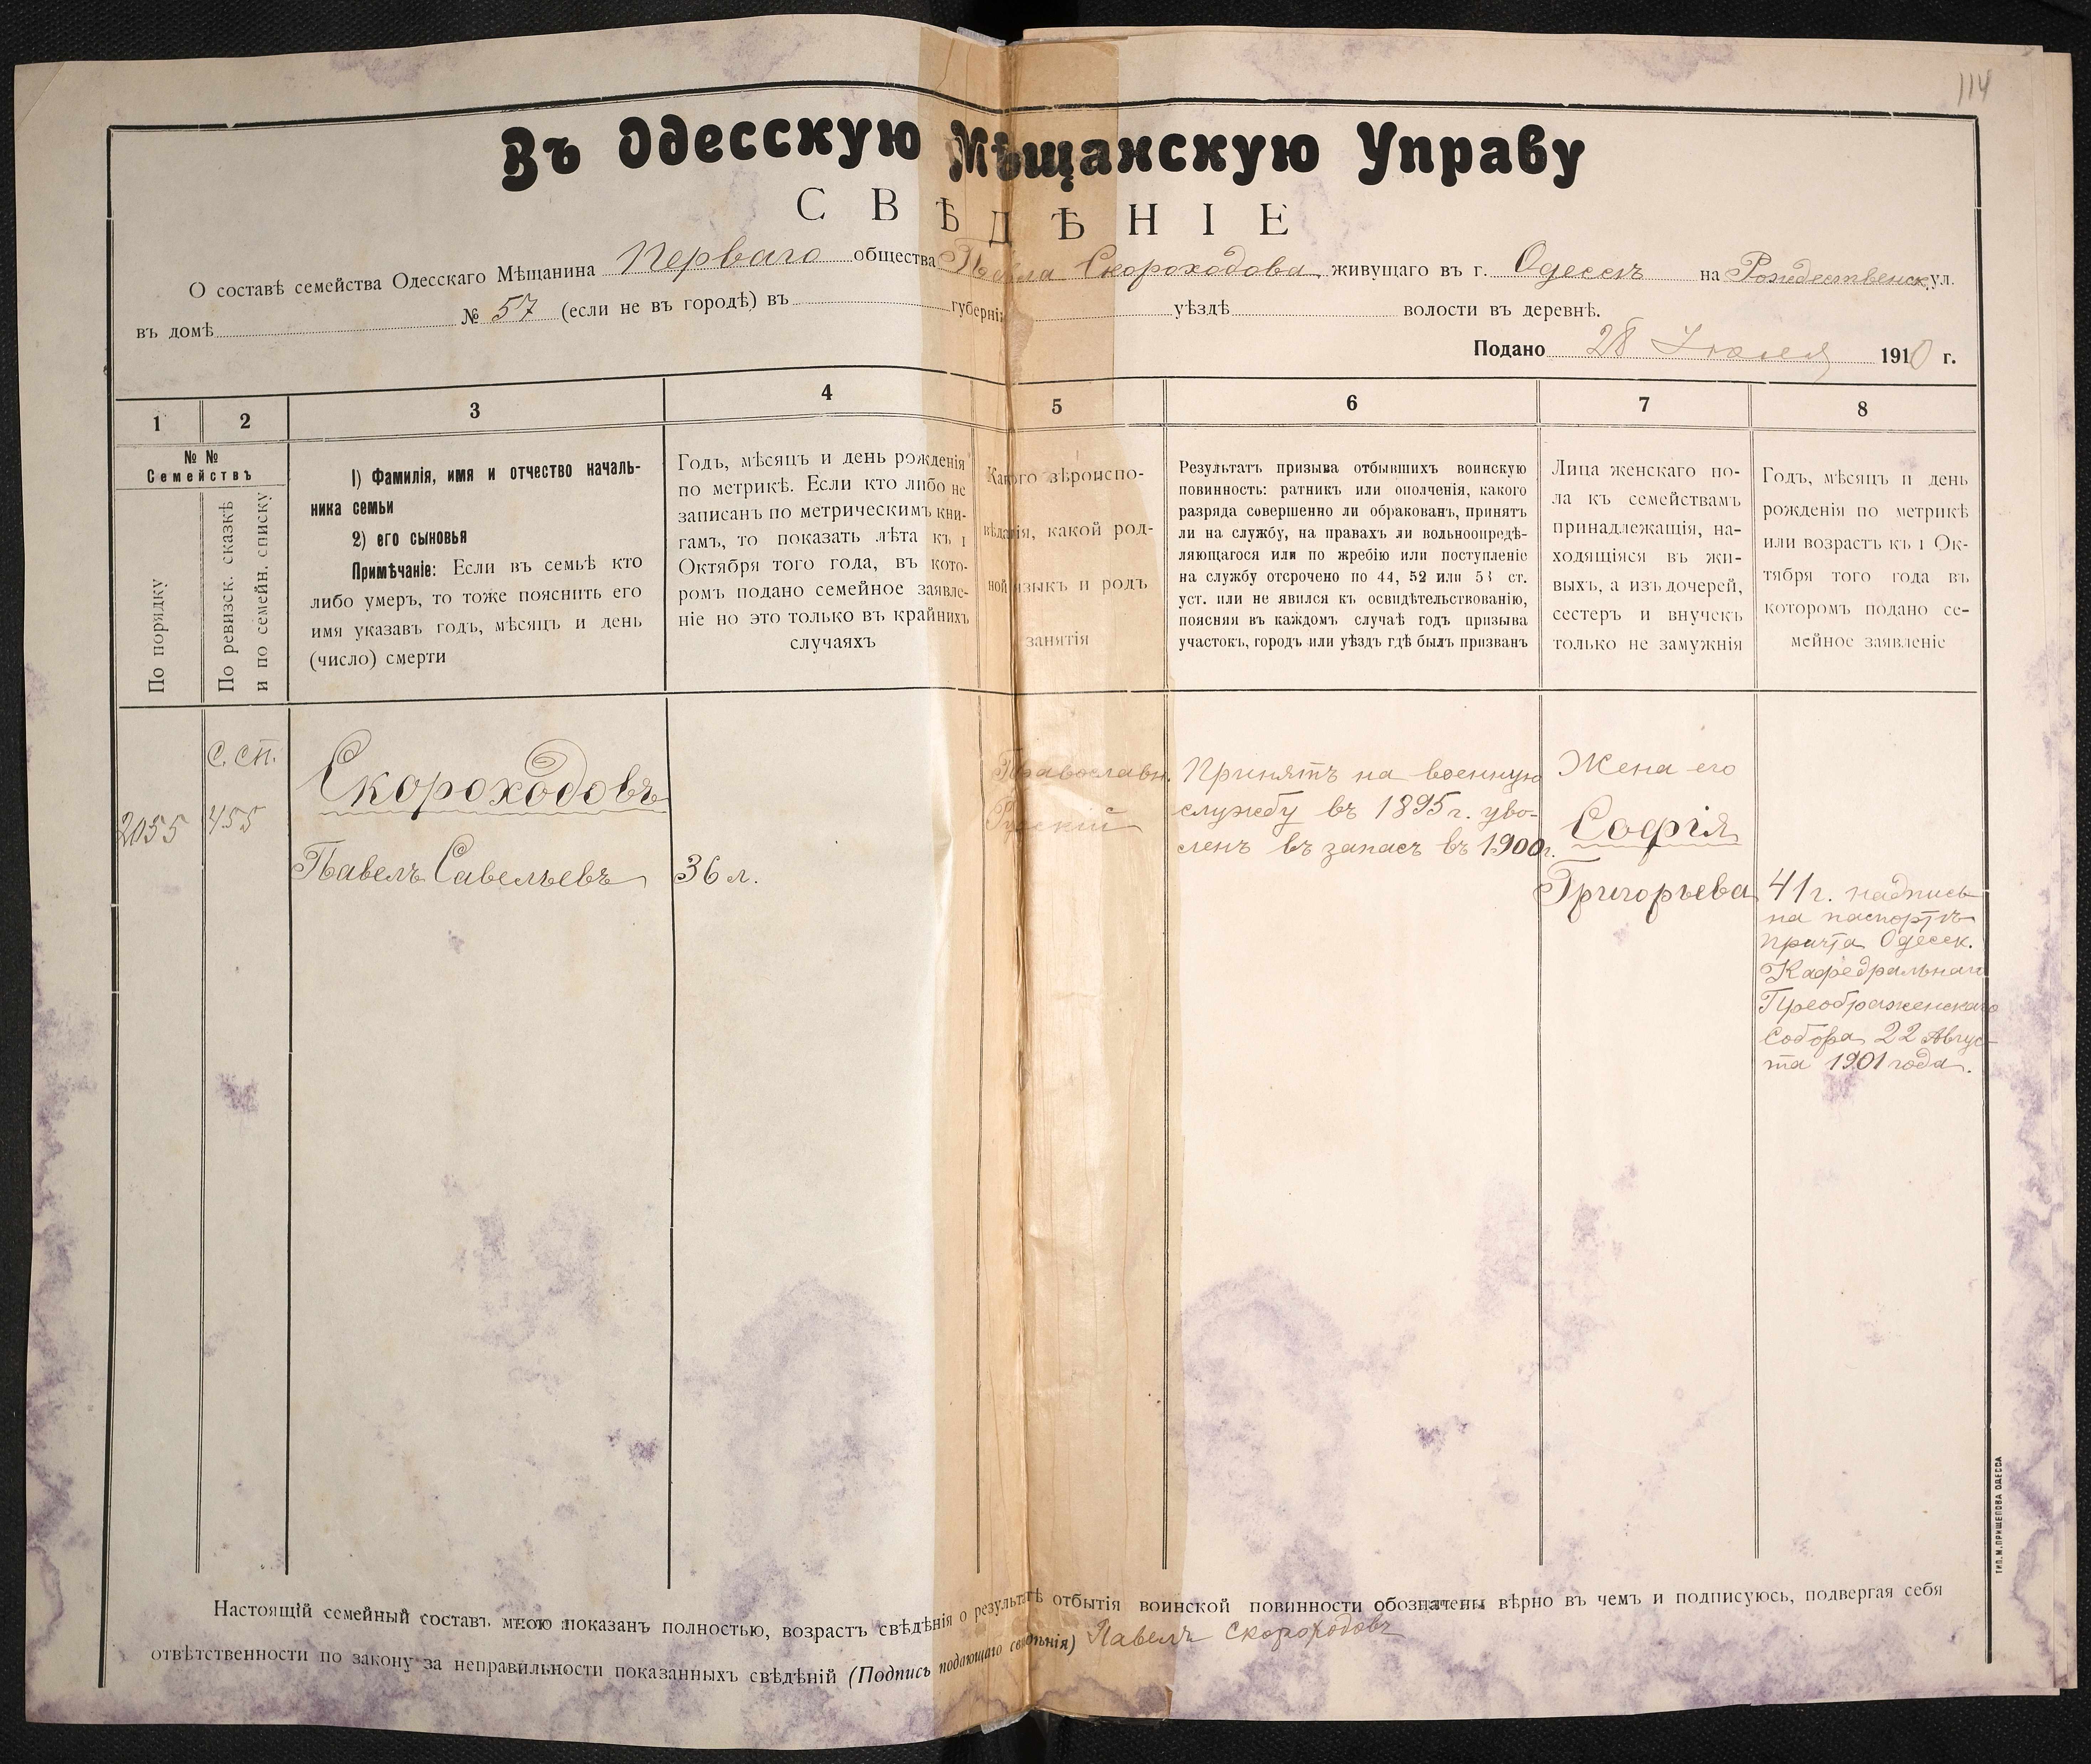 114
Въ Одесскую Мѣщанскую Управу
СВѢДѢНІЕ
О составѣ семейства Одесскаго Мѣщанина Перваго общества Павла Скороходова, живущаго въ г. Одессѣ на Рождественск. ул.
въ домѣ № 57 (если не въ городѣ) въ губерніи уѣздѣ волости въ деревнѣ.
Подано 28 1910 г.
1 2 3 4 5 6 7 8
№№
Семействъ
По порядку
По ревизск. сказкѣ
и по семейн. списку
1) Фамилія, имя и отчество началь-
ника семьи
2) его сыновья
Примѣчаніе: Если въ семьѣ кто
либо умеръ, то тоже пояснить его
имя указавъ годъ, мѣсяцъ и день
(число) смерти
Годъ, мѣсяцъ и день рожденія
по метрикѣ. Если кто либо не
записанъ по метрическимъ кни-
гамъ, то показать лѣта къ 1
Октября того года, въ кото-
ромъ подано семейное заявле-
ніе но это только въ крайнихъ
случаяхъ
Какого вѣроиспо-
вѣданія, какой род-
ной языкъ и родъ
занятія
Результатъ призыва отбывшихъ воинскую
повинность: ратникъ или ополченія, какого
разряда совершенно ли обракованъ, принятъ
ли на службу, на правахъ ли вольноопредѣ-
ляющагося или по жребію или поступленіе
на службу отсрочено по 44, 52 или 53 ст.
уст. или не явился къ освидѣтельствованію,
поясняя въ каждомъ случаѣ годъ призыва
участокъ, городъ или уѣздъ гдѣ былъ призванъ
Лица женскаго по-
ла къ семействамъ
принадлежащія, на-
ходящіяся въ жи-
выхъ, а изъ дочерей,
сестеръ и внучекъ
только не замужнія
Годъ, мѣсяцъ и день
рожденія по метрикѣ
или возрастъ къ 1 Ок-
тября того года въ
которомъ подано се-
мейное заявленіе
2055
С. сп.
455
Скороходовъ
Павелъ Савельевъ
36 л.
Православн.
Русскій
Принятъ на военную
службу въ 1895 г. уво-
ленъ въ запасъ въ 1900 г.
Жена его
Софія
Григорьева
41 г. надпись
на паспортѣ
причта Одесск.
Кафедральнаго
Преображенскаго
Собора 22 Авгус-
та 1901 года.
Настоящій семейный составъ мною показанъ полностью, возрастъ свѣдѣнія о результатѣ отбытія воинской повинности обозначены вѣрно въ чемъ и подписуюсь, подвергая себя
отвѣтственности по закону за неправильности показанныхъ свѣдѣній (Подпись подающаго свѣдѣнія) Павелъ Скороходовъ
ТИП. М. ПРИЩЕПОВА ОДЕССА